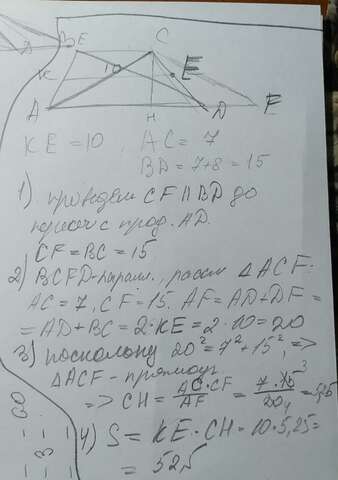 BE C
K 10 E
A H D F
KE = 10, AC = 7
BD = 7+8 = 15
1) проведём CF || BD до
пересеч с прод. AD.
CF = BC = 15
2) BCFD - паралл., рассм ΔACF:
AC = 7, CF = 15. AF = AD + DF =
= AD + BC = 2·KE = 2·10 = 20
3) поскольку 20² = 7² + 15², =>
ΔACF - прямоуг
=> CH = AC·CF / AF = 7·15³ / 20₁ = 5,25
4) S = KE·CH = 10·5,25 =
= 52,5